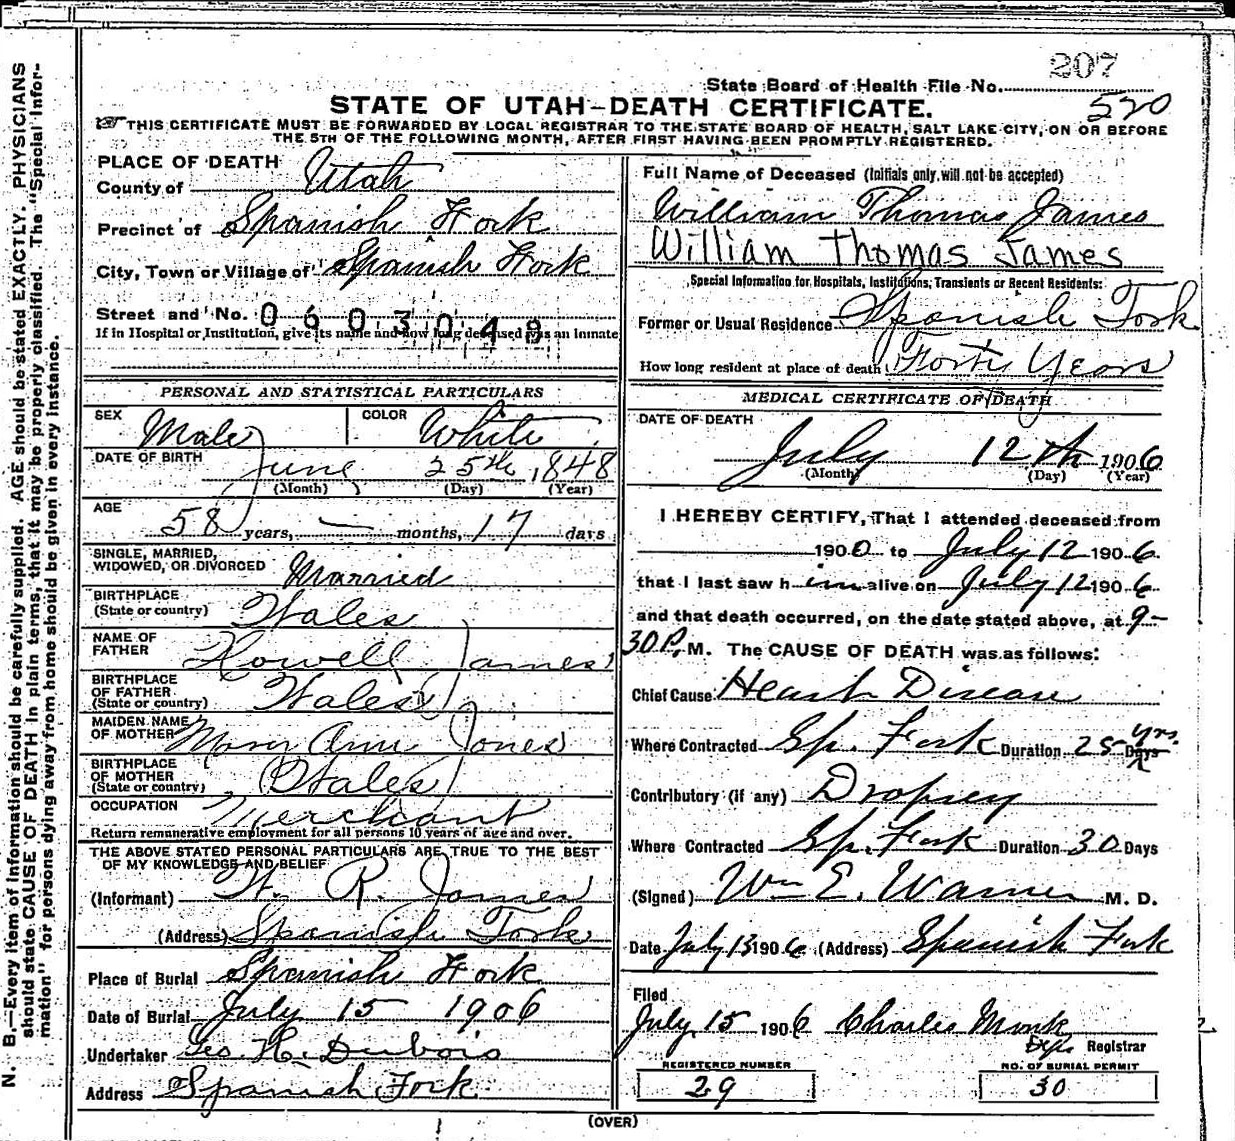 207
State Board of Health File No.
520
STATE OF UTAH-DEATH CERTIFICATE.
THIS CERTIFICATE MUST BE FORWARDED BY LOCAL REGISTRAR TO THE STATE BOARD OF HEALTH, SALT LAKE CITY, ON OR BEFORE
THE 5TH OF THE FOLLOWING MONTH, AFTER FIRST HAVING BEEN PROMPTLY REGISTERED.
PLACE OF DEATH
County of Utah
Precinct of Spanish Fork
City, Town or Village of Spanish Fork
Street and No. 0603048
If in Hospital or Institution, give its name and how long deceased was an inmate
PERSONAL AND STATISTICAL PARTICULARS
SEX Male COLOR White
DATE OF BIRTH June 25th, 1848
(Month) (Day) (Year)
AGE 58 years, — months, 17 days
SINGLE, MARRIED,
WIDOWED, OR DIVORCED Married
BIRTHPLACE
(State or country) Wales
NAME OF
FATHER Howell James
BIRTHPLACE
OF FATHER
(State or country) Wales
MAIDEN NAME
OF MOTHER Mary Ann Jones
BIRTHPLACE
OF MOTHER
(State or country) Wales
OCCUPATION Merchant
Return remunerative employment for all persons 10 years of age and over.
THE ABOVE STATED PERSONAL PARTICULARS ARE TRUE TO THE BEST
OF MY KNOWLEDGE AND BELIEF
(Informant) W. R. James
(Address) Spanish Fork
Place of Burial Spanish Fork
Date of Burial July 15 1906
Undertaker Geo. H. Dubois
Address Spanish Fork
Full Name of Deceased (Initials only will not be accepted)
William Thomas James
William Thomas James
Special Information for Hospitals, Institutions, Transients or Recent Residents:
Former or Usual Residence Spanish Fork
How long resident at place of death Forty Years
MEDICAL CERTIFICATE OF DEATH
DATE OF DEATH
July 12th 1906
(Month) (Day) (Year)
I HEREBY CERTIFY, That I attended deceased from
1900 to July 12 1906
that I last saw him alive on July 12 1906
and that death occurred, on the date stated above, at 9-
30 P. M. The CAUSE OF DEATH was as follows:
Chief Cause Heart Disease
Where Contracted Sp. Fork Duration 25 Days yrs.
Contributory (if any) Dropsey
Where Contracted Sp. Fork Duration 30 Days
(Signed) Wm E. Warner M. D.
Date July 13 1906 (Address) Spanish Fork
Filed
July 15 1906 Charles Monk
Dep. Registrar
REGISTERED NUMBER
29
NO. OF BURIAL PERMIT
30
(OVER)
N. B.—Every item of information should be carefully supplied. AGE should be stated EXACTLY. PHYSICIANS
should state CAUSE OF DEATH in plain terms, that it may be properly classified. The "Special Infor-
mation" for persons dying away from home should be given in every instance.